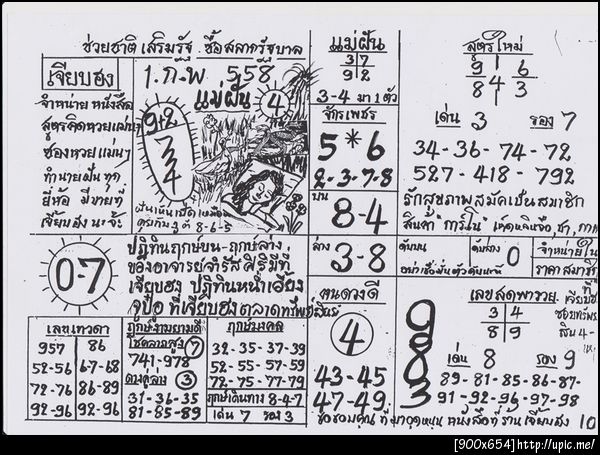 ช่วยชาติ เสริมรัฐ ซื้อสลากรัฐบาล
เจียบฮง
1. ก.พ 558
แม่ฝัน 4
จำหน่าย หนังสือ
สูตรคิดหวยแม่นๆ
ซองหวยแม่นๆ
ทำนายฝัน ทุก
ยี่ห้อ มีขายที่
เจียบฮง นะจ๊ะ
9+2
7
3
4
8-6-5
แม่ฝัน
3 7
9 2
3-4 มา 1 ตัว
จักรเพชร
5*6
2-3-7-8
บน 8-4
ล่าง 3-8
สูตรใหม่
9 6
8 4 3
เด่น 3 รอง 7
34-36-74-72
527-418-792
รักสุขภาพสมัครเป็นสมาชิก
สินค้า
0-7
ปฏิทินฤกษ์บน-ฤกษ์ล่าง
ของอาจารย์จำรัส ศิริมีที่
เจียบฮง ปฏิทินหน่ำเอี๊ยง
จูป้อ ที่เจียบฮงตลาดทรัพย์สินธ์
0
จำหน่ายใน
ราคาสมาชิ
เลขเทวดา
957 86
52-56 67-68
72-76 86-89
92-96 92-96
ฤกษ์งามยามดี
โชคลาภสูง 7
741-978
3
31-36-35
81-85-89
ฤกษ์มงคล
32-35-37-39
52-55-57-59
72-75-77-79
ฤกษ์เดินทาง 8-4-7
เด่น 7 รอง 3
คนดวงดี
4
43-45
47-49
9
8
0
3
เลขสดพารวย
3 4
8 9
เด่น 8 รอง 9
89-81-85-86-87
91-92-96-97-98
ขอขอบคุณ ที่มาอุดหนุน หนังสือที่ร้าน เจียบฮง 10
[900x654]http://upic.me/